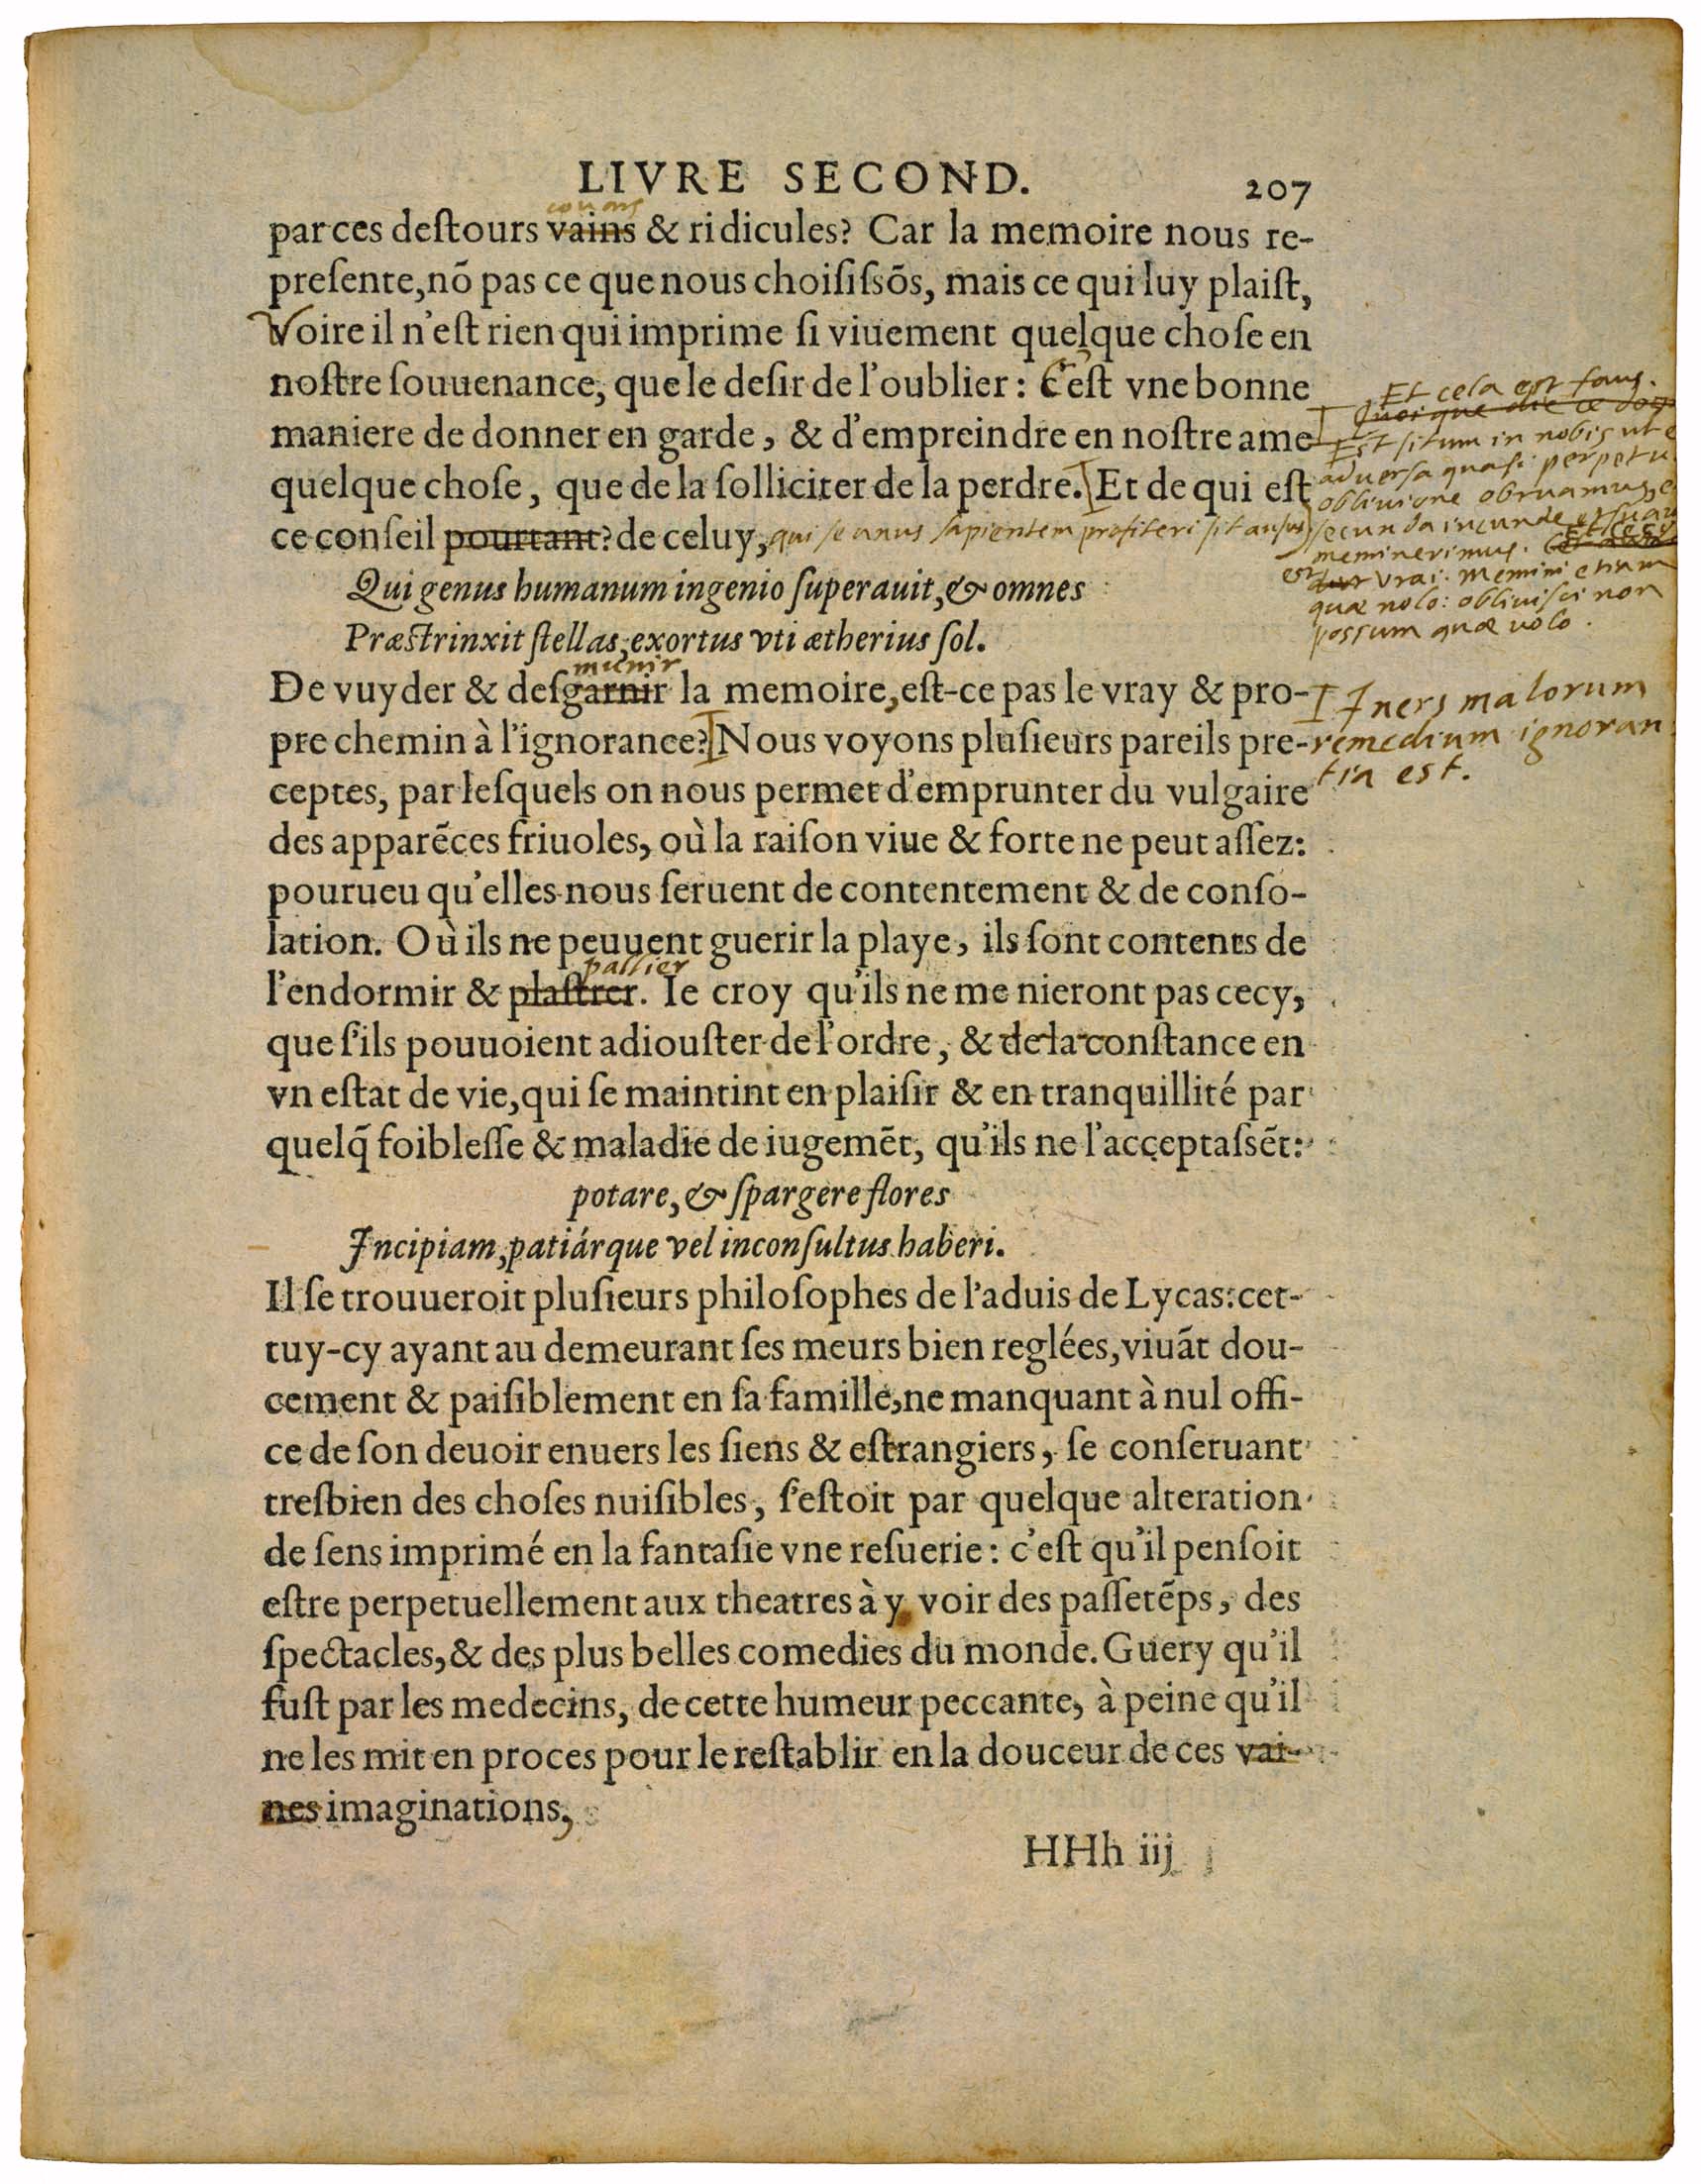 LIVRE SECOND. 207
couars
par ces deſtours vains & ridicules? Car la memoire nous re-
preſente, nõ pas ce que nous choiſiſsõs, mais ce qui luy plaiſt,
Voire il n'eſt rien qui imprime ſi viuement quelque choſe en
noſtre ſouuenance, que le deſir de l'oublier: C'eſt vne bonne
maniere de donner en garde, & d'empreindre en noſtre ame
quelque choſe, que de la ſolliciter de la perdre. Et de qui eſt
ce conſeil pourtant? de celuy, qui se unus sapientem profiteri sit ausus
Qui genus humanum ingenio ſuperauit, & omnes
Præſtrinxit ſtellas, exortus vti ætherius ſol.
munir
De vuyder & deſgarnir la memoire, eſt-ce pas le vray & pro-
pre chemin à l'ignorance? Nous voyons pluſieurs pareils pre-
ceptes, par leſquels on nous permet d'emprunter du vulgaire
des apparẽces friuoles, où la raiſon viue & forte ne peut aſſez:
pourueu qu'elles nous ſeruent de contentement & de conſo-
lation. Où ils ne peuuent guerir la playe, ils ſont contents de
pallier
l'endormir & plaſtrer. Ie croy qu'ils ne me nieront pas cecy,
que ſ'ils pouuoient adiouſter de l'ordre, & de la conſtance en
vn eſtat de vie, qui ſe maintint en plaiſir & en tranquillité par
quelq̃ foibleſſe & maladie de iugemẽt, qu'ils ne l'acceptaſsẽt:
potare, & ſpargere flores
Incipiam, patiárque vel inconſultus haberi.
Il ſe trouueroit pluſieurs philoſophes de l'aduis de Lycas: cet-
tuy-cy ayant au demeurant ſes meurs bien reglées, viuãt dou-
cement & paiſiblement en ſa famille, ne manquant à nul offi-
ce de ſon deuoir enuers les ſiens & eſtrangiers, ſe conſeruant
treſbien des choſes nuiſibles, ſ'eſtoit par quelque alteration
de ſens imprimé en la fantaſie vne reſuerie: c'eſt qu'il penſoit
eſtre perpetuellement aux theatres à y voir des paſſetẽps, des
ſpectacles, & des plus belles comedies du monde. Guery qu'il
fuſt par les medecins, de cette humeur peccante, à peine qu'il
ne les mit en proces pour le reſtablir en la douceur de ces vai-
nes imaginations,
HHh iij
Et cela est faus.
Quoi que die ce
Est situm in nobis ut e
adversa quasi perpetu
oblivione obruamus, e
secunda iucunde et suav
meminerimus. Et cecy
est vrai. Memini etiam
quæ nolo: oblivisci non
possum quæ volo.
Iners malorum
remedium ignoran
tia est.